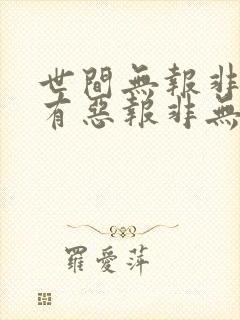 世間無報非
有惡報非無
羅愛萍